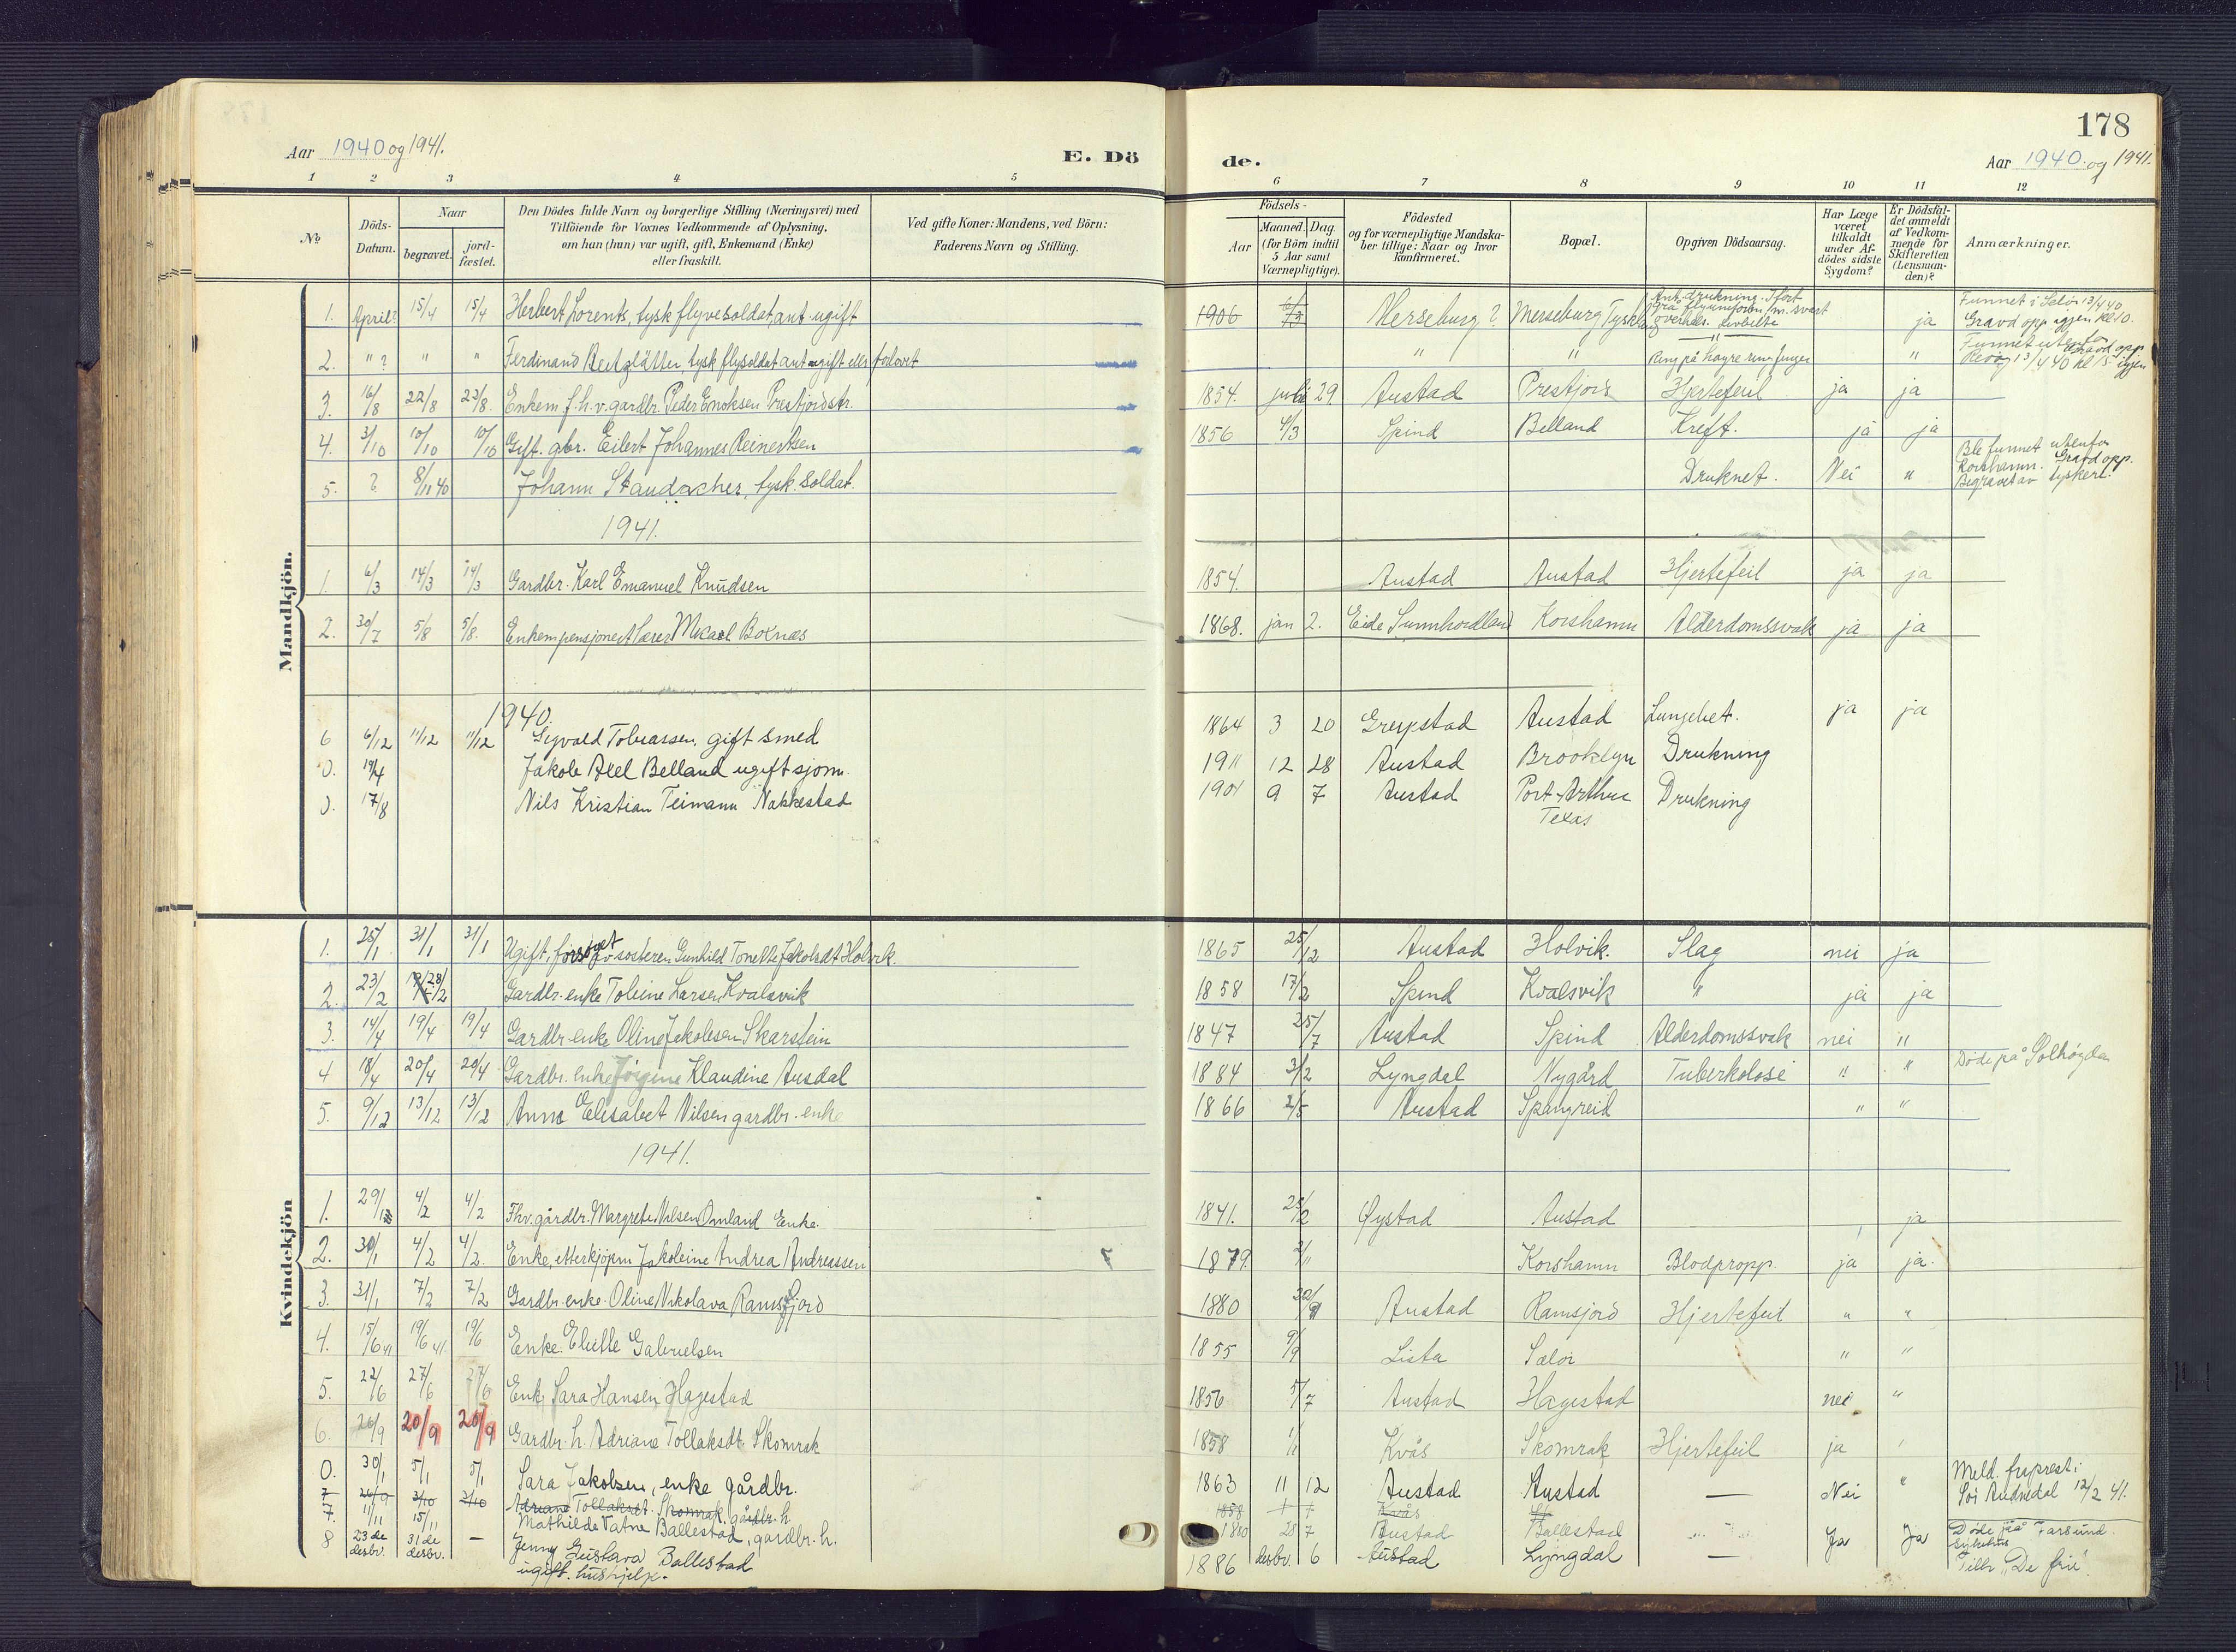 178
Aar 1940 og 1941.
E. Dö
de.
Aar 1940 og 1941.
1 2 3 4 5 6 7 8 9 10 11 12
No
Döds-Datum.
Naar
begravet.
jord-fæstet.
Den Dödes fulde Navn og borgerlige Stilling (Næringsvei) med
Tilföiende for Voxnes Vedkommende af Oplysning,
om han (hun) var ugift, gift, Enkemand (Enke)
eller fraskilt.
Ved gifte Koner: Mandens, ved Börn:
Faderens Navn og Stilling.
Födsels-
Aar
Maaned. Dag
(for Börn indtil
5 Aar samt
Værnepligtige).
Födested
og for værnepligtige Mandska-
ber tillige: Naar og hvor
konfirmeret.
Bopæl.
Opgiven Dödsaarsag.
Har Læge
været
tilkaldt
under Af-
dödes sidste
Sygdom?
Er Dödsfal-
det anmeldt
af Vedkom-
mende for
Skifteretten
(Lensman-
den)?
Anmærkninger.
Mandkjön.
1. April? 15/4 15/4 Herbert Lorents, tysk flyvesoldat, ant. ugift 1906 Merseburg? Merseburg Tyskland Ant. drukning. Iført grå flyuniform m. svart ja Funnet i Seløi 13/4 40 Gravd opp igjen kl 10.
2. " ? " " Ferdinand tysk flysoldat ant ugift eller forlovet " " " Ring på høgre ringfinger " Funnet utenfor 13/4 40 kl 15 Gravd opp igjen
3. 16/8 22/8 22/8. Enkem. f.h.v. gardbr. Peder Enoksen Prestjordstr. 1854. juli 29. Austad Prestjord Hjertefeil ja ja
4. 3/10 10/10 10/10 Gift. gbr. Eilert Johannes Reinertsen 1856 4/3 Spind Belland Kreft. ja ja
5. ? 8/11 40 Johann Staudacher, tysk. soldat. Druknet. Nei " Ble funnet utenfor Korshamn. Gravd opp. Begravet av tyskere.
1941.
1. 6/3 14/3 14/3 Gardbr. Karl Emanuel Knudsen 1854. Austad Austad Hjertefeil ja ja
2. 30/7 5/8 5/8. Enkem pensjonert lærer Mikael Boknæs 1868. jan 2. Eide Sunnhordland Korshamn Alderdomssvak ja ja
1940.
6 6/12 11/12 11/12 Sigvald Tobiassen, gift smed 1864 3 20 Greipstad Austad Lungebet. ja ja
0. 19/4 Jakob Axel Belland ugift sjøm. 1911 12 28 Austad Brooklyn Drukning
0. 17/8 Nils Kristian Teimann Nakkestad 1901 9 7 Austad Port-Arthur Texas Drukning
Kvindekjön
1. 25/1 31/1 31/1 Ugift, forsørget av søsteren Gunhild Tonette Jakobsdt Holvik. 1865 25/12 Austad Holvik. Slag nei ja
2. 23/2 28/2 Gardbr. enke Tobine Larsen Kvalsvik 1858 17/2 Spind Kvalsvik " ja ja
3. 14/4 19/4 19/4 Gardbr enke Oline Jakobsen Skarstein 1847 25/7 Austad Spind Alderdomssvak nei "
4 18/4 20/4 20/4 Gardbr. enke Jørgine Klaudine Ausdal 1884 3/2 Lyngdal Nygård Tuberkolose " " Døde på Solhøgda
5. 9/12 13/12 13/12 Anna Elisabet Nilsen gardbr. enke 1866 2/5 Austad Spangreid " "
1941.
1. 29/1 4/2 4/2 Fhv. gårdbr. Margrete Nilsen Omland Enke. 1841. 25/2 Øystad Austad ja
2. 30/1 4/2 4/2. Enke, etterkjøpm Jakobine Andrea Andreassen 1879. 2/11 Korshamn Blodpropp. ja ja.
3. 31/1 7/2 7/2 Gardbr. enke. Oline Nikolava Ramsfjord 1880 Austad Ramsjord Hjertefeil " "
4. 15/6 41 19/6 41. 19/6 Enke. Gabrielsen 1855 9/9 Lista Sæløi " "
5. 22/6 27/6 27/6 Enk. Sara Hansen Hagestad 1856 5/7 Austad Hagestad nei "
6. 20/9 20/9 Gardbr. h. Adriane Tollaksdt. Skomrak 1858 Kvås Skomrak Hjertefeil ja
0. 30/1 5/1 5/1 Sara Jakobsen, enke gårdbr. 1863 11 12 Austad Austad — Nei " Meld. fra prest i Sør Audnedal 12/2 41.
7 3/10 3/10 Adriane Tollaksdt. Skomrak. gårdbr. h 1858 Kvås
7. 11/11 15/11 Mathilde Vatne Ballestad, gardbr. h. 1880 28 7 Austad Ballestad Ja Ja Døde på Farsund sykehus
8 23 de desbr. 31 de desbr. — Jenny Gustava Ballestad ugift. hushjelp. 1886 desbr. 6 Austad Lyngdal — Tilh. "De frie".